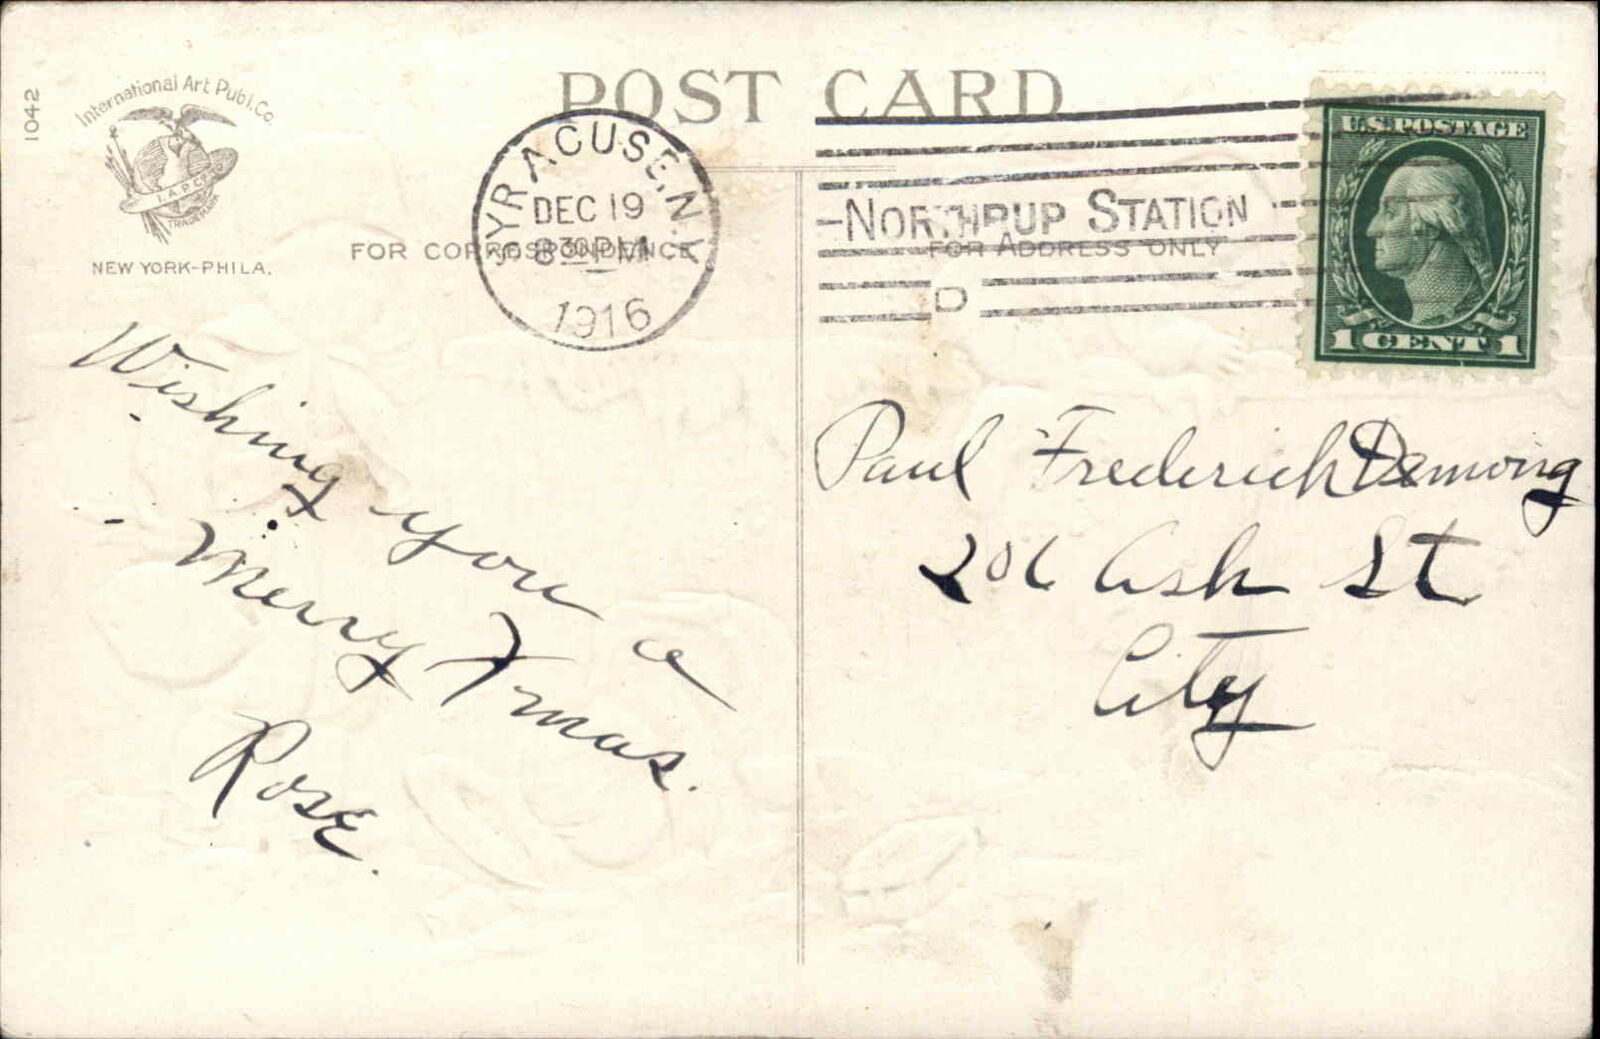 1042
International Art Publ. Co.
I. A. P. Co.
TRADE MARK
NEW YORK-PHILA.
POST CARD
FOR CORRESPONDENCE
FOR ADDRESS ONLY
SYRACUSE, N.Y.
DEC 19
8 30 PM
1916
NORTHRUP STATION
D
U.S. POSTAGE
1 CENT 1
Wishing you a
Merry Xmas.
Rose.
Paul Frederich Demong
206 Ash St
City